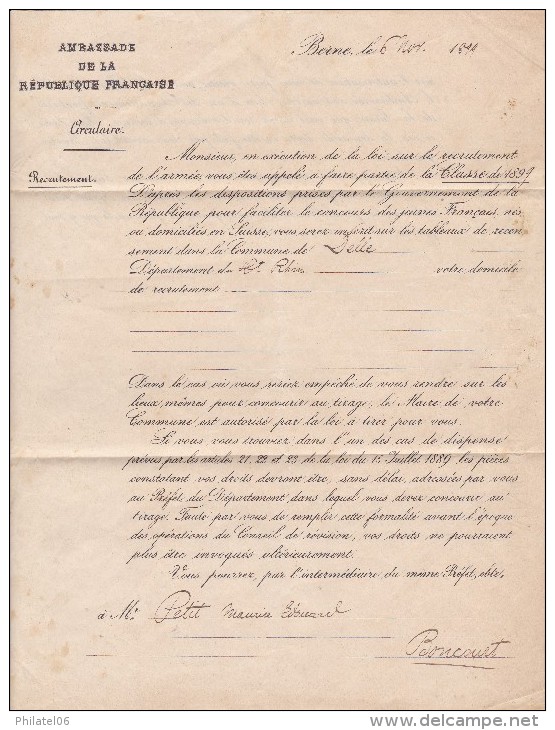 AMBASSADE
DE LA
RÉPUBLIQUE FRANÇAISE
Circulaire.
Recrutement.
Berne, le 6 Nov. 1899
Monsieur, en exécution de la loi sur le recrutement
de l'armée, vous êtes appelé à faire partie de la Classe de 1899
D'après les dispositions prises par le Gouvernement de la
République pour faciliter le concours des jeunes Français, nés
ou domiciliés en Suisse, vous serez inscrit sur les tableaux de recen-
sement dans la Commune de Delle
Département du Ht Rhin votre domicile
de recrutement
Dans le cas où vous seriez empêché de vous rendre sur les
lieux mêmes pour concourir au tirage, le Maire de votre
Commune est autorisé par la loi à tirer pour vous.
Si vous vous trouviez dans l'un des cas de dispense
prévus par les articles 21, 22 et 23 de la loi du 15 Juillet 1889, les pièces
constatant vos droits devront être, sans délai, adressées par vous
au Préfet du Département dans lequel vous devez concourir au
tirage. Faute par vous de remplir cette formalité avant l'époque
des opérations du Conseil de révision, vos droits ne pourraient
plus être invoqués ultérieurement.
Vous pourrez, par l'intermédiaire du même Préfet, obte-
à Mr. Petit Maurice Edouard
Boncourt
Philatel06
www.delcampe.net